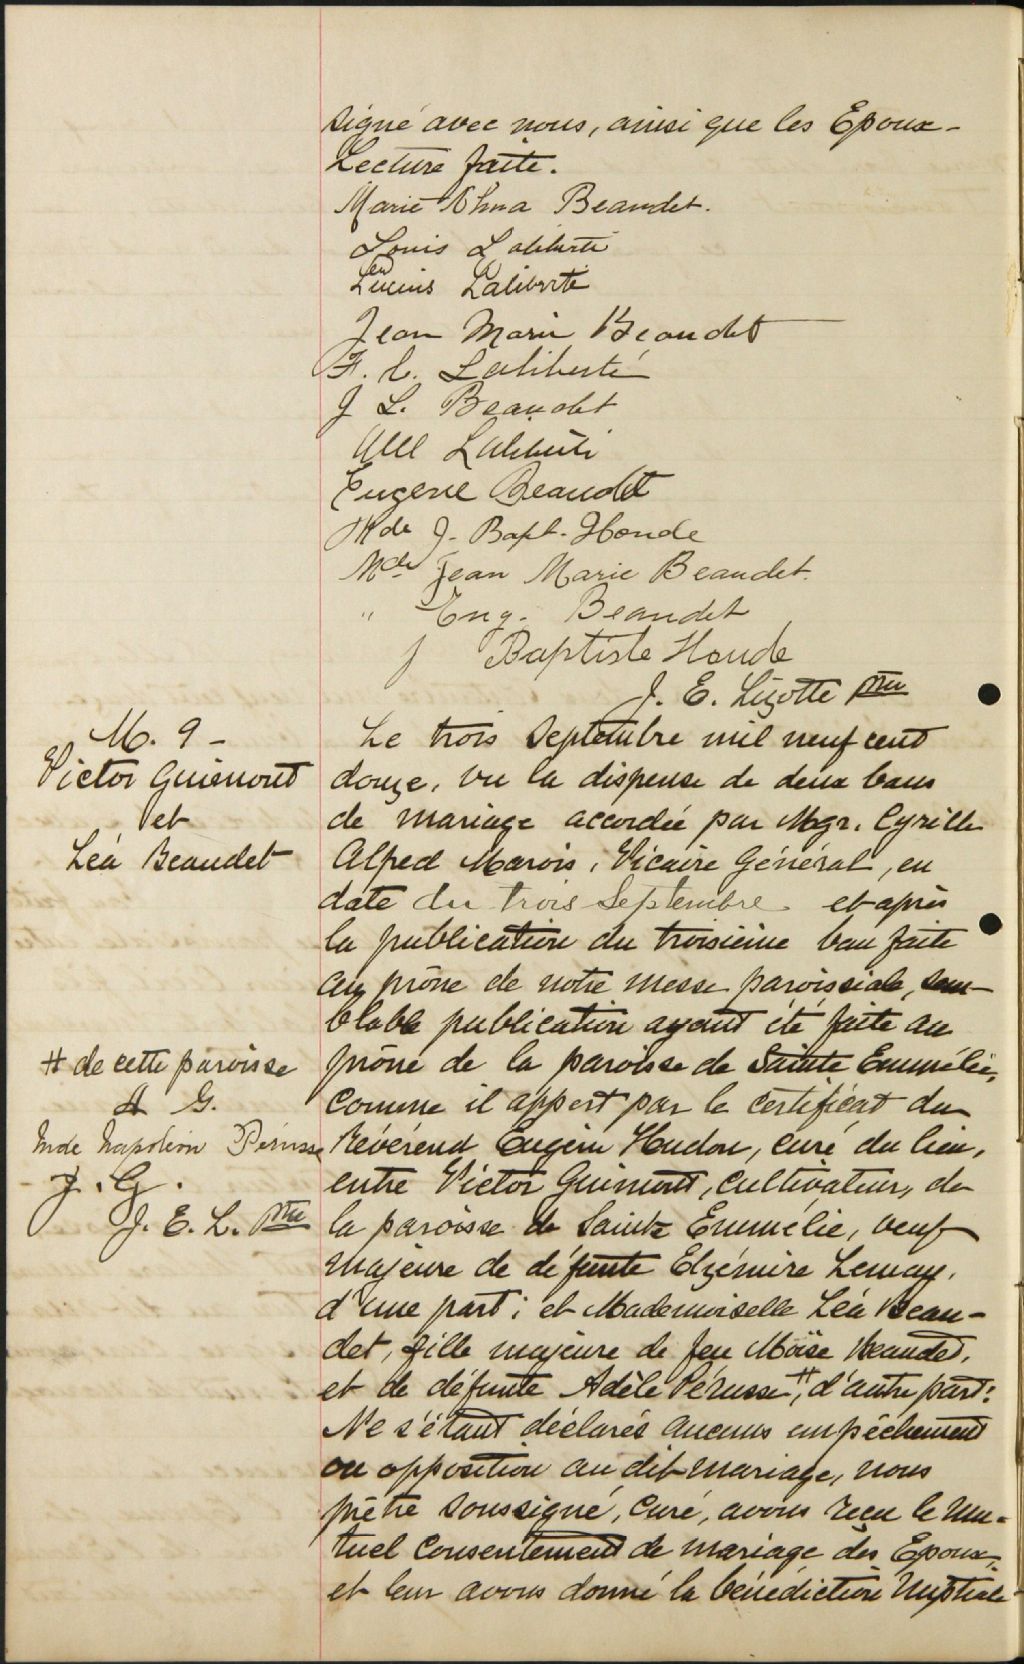 signé avec nous, ainsi que les Epoux -
Lecture faite.
Marie Beaudet.
Louis Laliberté
Lucius Laliberté
Jean Marie Beaudet
F. L. Laliberté
J L. Beaudet
Laliberté
Eugene Beaudet
Mde J. Bapt. Houde
Mde Jean Marie Beaudet.
" Eug. Beaudet
J Baptiste Houde
J. E. Lizotte ptre
M. 9 -
Victor Guimont
et
Léa Beaudet
Le trois Septembre mil neuf cent
douze, vu la dispense de deux bans
de mariage accordée par Mgr. Cyrille
Alfred Marois, Vicaire Général, en
date du trois Septembre et après
la publication du troisième ban faite
au prône de notre messe paroissiale, sem-
blable publication ayant été faite au
prône de la paroisse de Sainte Emmélie,
comme il appert par le certificat du
Révérend Eugène Hudon, curé du lieu,
entre Victor Guimont, cultivateur, de
la paroisse de Sainte Emmélie, veuf
majeure de défunte Elzémire Lemay,
d'une part; et Mademoiselle Léa Beau-
det, fille majeure de feu Moïse Beaudet,
et de défunte Adèle Pérusse #, d'autre part:
Ne s'étant déclarés aucuns empêchement
ou opposition au dit mariage, nous
prêtre soussigné, curé, avons reçu le mu-
tuel consentement de mariage des Epoux,
et leur avons donné la bénédiction Nuptiale
# de cette paroisse
A G.
Mde Napoléon Pérusse
J. G.
J. E. L. Ptre